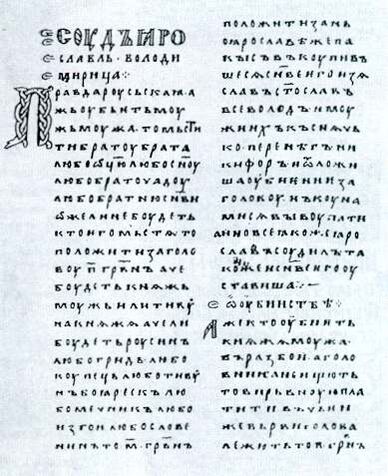 СОУДЪ ꙖРО
СЛАВЛЬ · ВОЛОДИ
МИРИЦА ⁘
Правда роусьскаꙗ. а
жь оубьить моу
жь моужа. то мьсти
ти братоу брата
любо ѡц҃ю любо сн҃оу
любо братоучадоу
любо братню сн҃ви
ѡже ли не боудеть
кто ѥго мьстѧ то
положити за голо
воу п҃ грв҃нъ аче
боудеть кнѧжь
моужь или тиву
на кнѧжѧ аче ли
боудеть роусинъ
любо гридь любо
коупець любо тивоу
нъ боꙗрескъ лю
бо мечникъ любо
изгои любо слове
нинъ то м҃ грв҃нъ
положити за нь
о ꙗрославѣ же па
кы съвъкоупивъ
шесѧ сн҃ве ѥго изѧ
славъ ст҃ославъ
всеволодъ и моу
жи ихъ къснѧчь
ко перенѣгъ ни
кифоръ и ѿложи
ша оубиениѥ за
головоу нъ коуна
ми сѧ выкоупати
а ино все ꙗкоже ꙗро
славъ соудилъ та
коже и сн҃ве ѥго оу
ставиша ⁘
ѡ оубииствѣ ⁘
Аже кто оубить
кнѧжѧ моужа
въ разбои а голо
вника не ищють
то вирьвноую пла
тити въ чьи
же вьрви голова
лежить то п҃ грв҃н